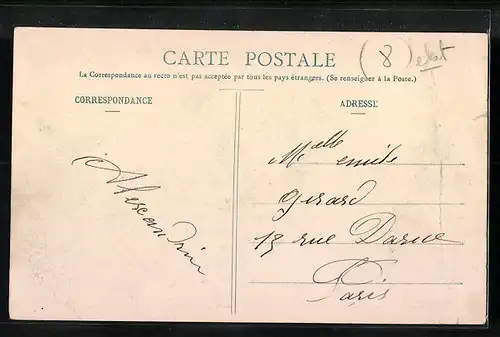 CARTE POSTALE
(8) ebt
La Correspondance au recto n'est pas acceptée par tous les pays étrangers. (Se renseigner à la Poste.)
CORRESPONDANCE
ADRESSE
Alexandrin
Melle emile
gerard
13 rue Daru
Paris